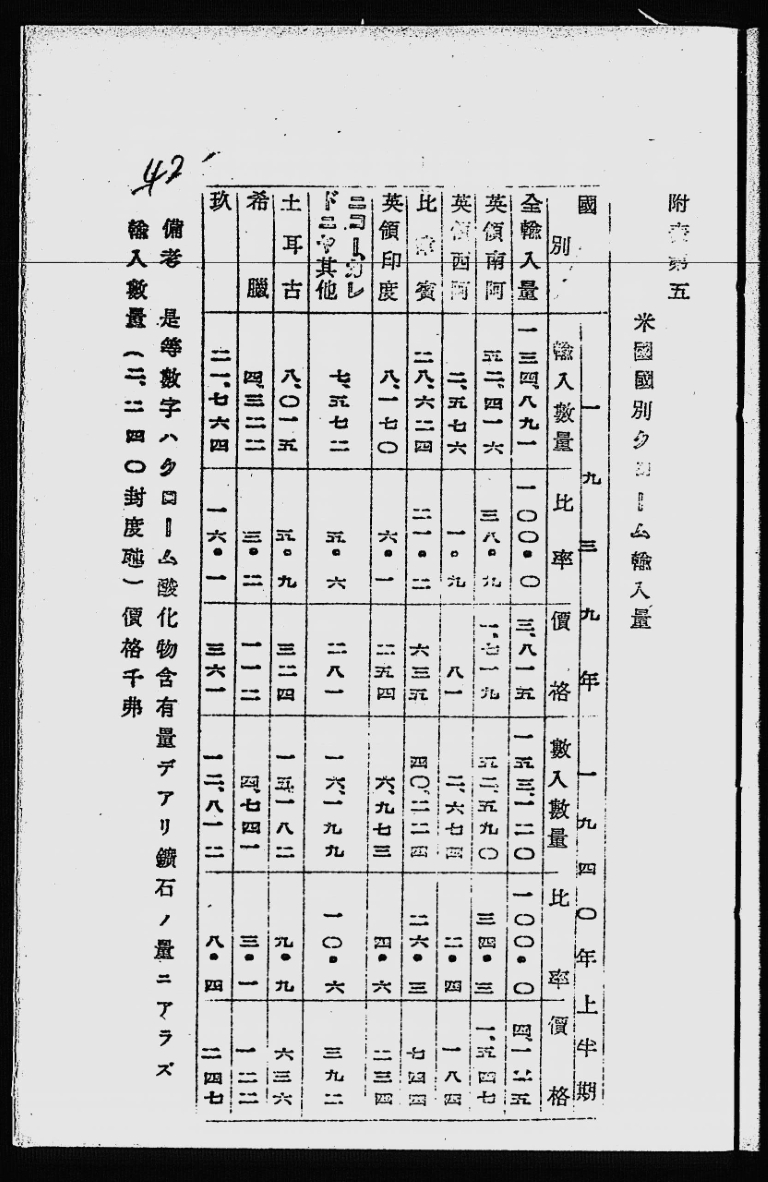 附表第五
米國國別クローム輸入量
國別 一九三九年 一九四〇年上半期
輸入數量 比率 價格 數入數量 比率 價格
全輸入量 一三四、八九一 一〇〇・〇 三、八一五 一五三、一二〇 一〇〇・〇 四、一二五
英領南阿 五二、四一六 三八・九 一、七一九 五二、五九〇 三四・三 一、五四七
英領西阿 二、五七六 一・九 八一 二、六七四 二・四 一八四
比律賓 二八、六二四 二一・二 六三五 四〇、二二四 二六・三 七四四
英領印度 八、一七〇 六・一 二五四 六、九七三 四・六 二三四
ニューカレ
ドニヤ其他 七、五七二 五・六 二八一 一六、一九九 一〇・六 三九二
土耳古 八、〇一五 五・九 三二四 一五、一八二 九・九 六三六
希臘 四、三二二 三・二 一一二 四、七四一 三・一 一二二
玖 二一、七六四 一六・一 三六一 一二、八一二 八・四 二四七
備考 是等數字ハクローム酸化物含有量デアリ鑛石ノ量ニアラズ
輸入數量(二、二四〇封度噸)價格千弗
42